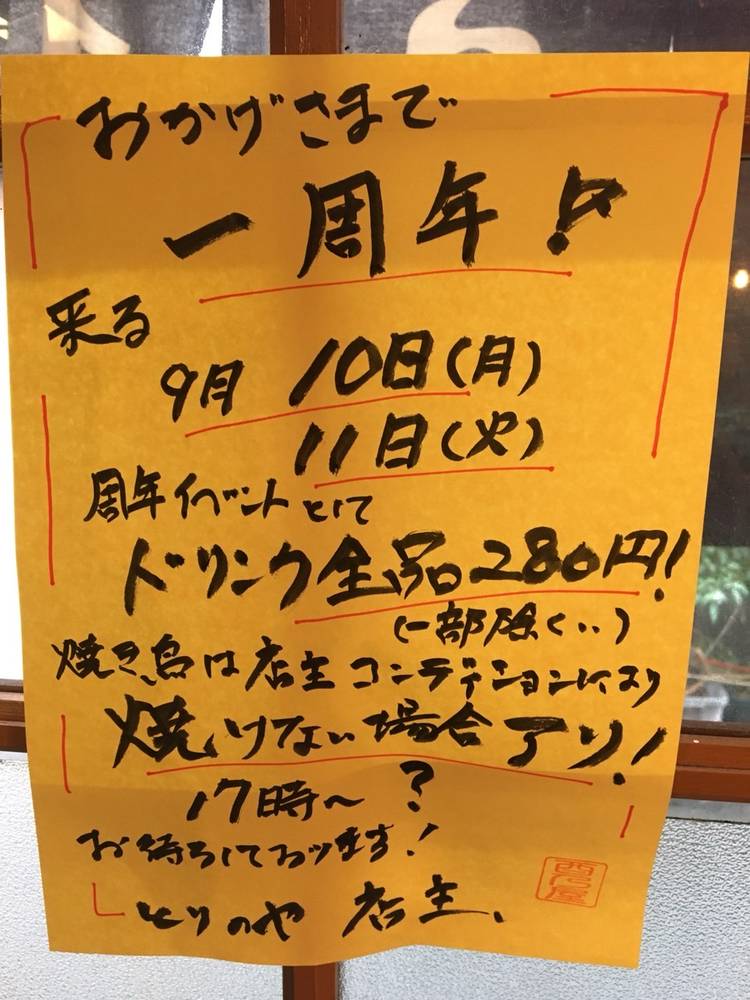 おかげさまで
一周年!
来る
9月 10日(月)
11日(火)
周年イベントとして
ドリンク全品280円!
(一部除く..)
焼き鳥は店主コンディションにより
焼けない場合アリ!
?
17時〜
お待ちしております!
とりのや 店主、